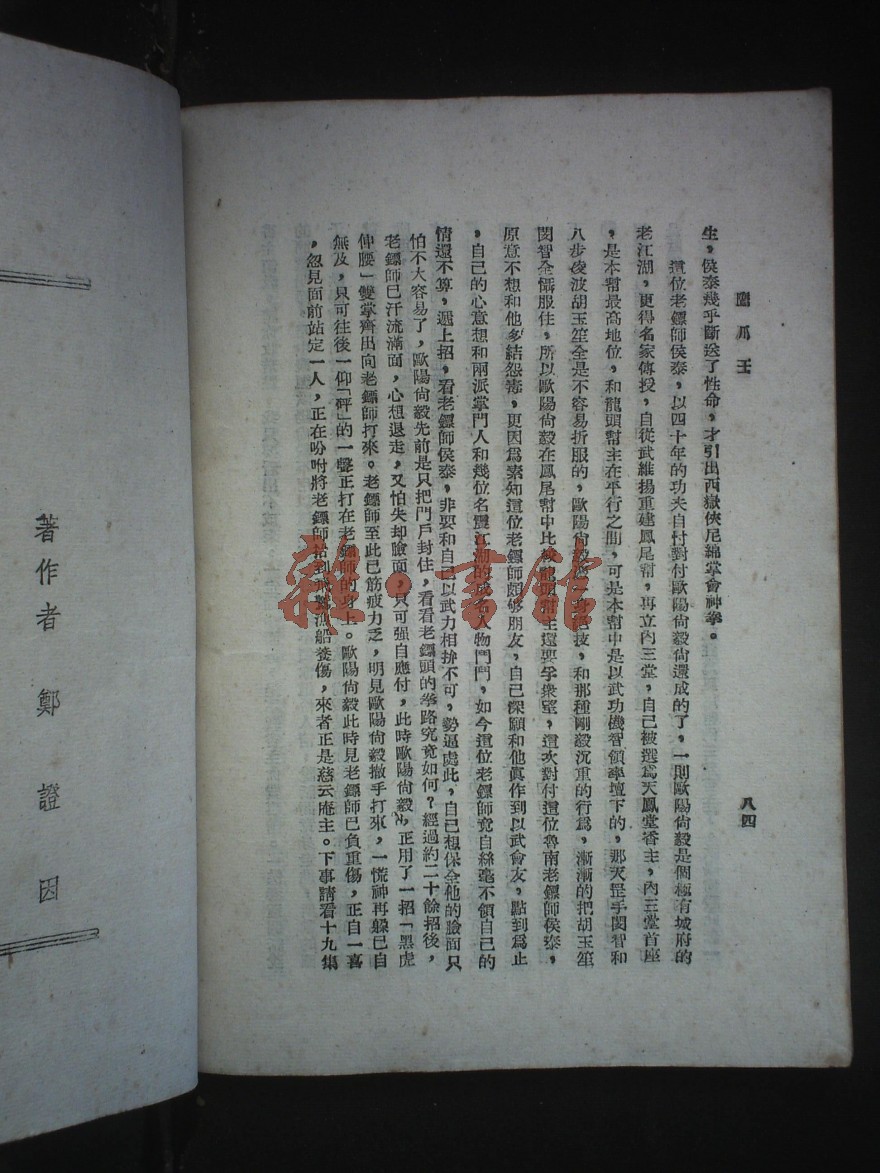 鷹爪王
八四
生，侯泰幾乎斷送了性命，才引出西嶽俠尼綿掌會神拳。
這位老鏢師侯泰，以四十年的功夫自忖對付歐陽尙毅尙還成的了，一則歐陽尙毅是個極有城府的
老江湖，更得名家傳授，自從武維揚重建鳳尾幫，再立內三堂，自己被選爲天鳳堂香主，內三堂首座
，是本幫最高地位，和龍頭幫主在平行之間，可是本幫中是以武功機智領率壇下的，那天罡手閔智和
八步凌波胡玉笙全是不容易折服的，歐陽尙毅一身絕技，和那種剛毅沉重的行爲，漸漸的把胡玉笙
閔智全懾服住，所以歐陽尙毅在鳳尾幫中比較龍頭幫主還要孚衆望，這次對付這位魯南老鏢師侯泰，
原意不想和他多結怨毒，更因爲素知這位老鏢師頗够朋友，自己深願和他眞作到以武會友，點到爲止
，自己的心意想和兩派掌門人和幾位名震江湖的成名人物鬥鬥，如今這位老鏢師竟自絲毫不領自己的
情還不算，遞上招，看老鏢師侯泰，非要和自己以武力相拚不可，勢逼處此，自己想保全他的臉面只
怕不大容易了，歐陽尙毅先前是只把門戶封住，看看老鏢頭的拳路究竟如何？經過約二十餘招後，
老鏢師已汗流滿面，心想退走，又怕失却臉面，只可强自應付，此時歐陽尙毅，正用了一招「黑虎
伸腰」雙掌齊出向老鏢師打來。老鏢師至此已筋疲力乏，明見歐陽尙毅撤手打來，一慌神再躱已自
無及，只可往後一仰「砰」的一聲正打在老鏢師的身上。歐陽尙毅此時見老鏢師已負重傷，正自一喜
，忽見面前站定一人，正在吩咐將老鏢師抬到漁船養傷，來者正是慈云庵主。下事請看十九集
著作者 鄭證因
雜·書館